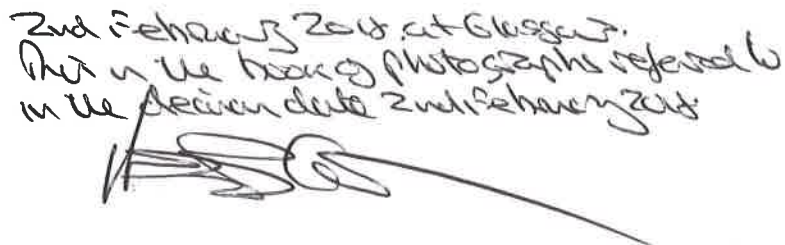 2nd February 2018 at Glasgow.
This is the book of photographs referred to
in the decision date 2nd February 2018